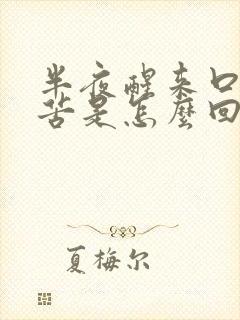 半夜醒来口
苦是怎麽回
夏梅尔